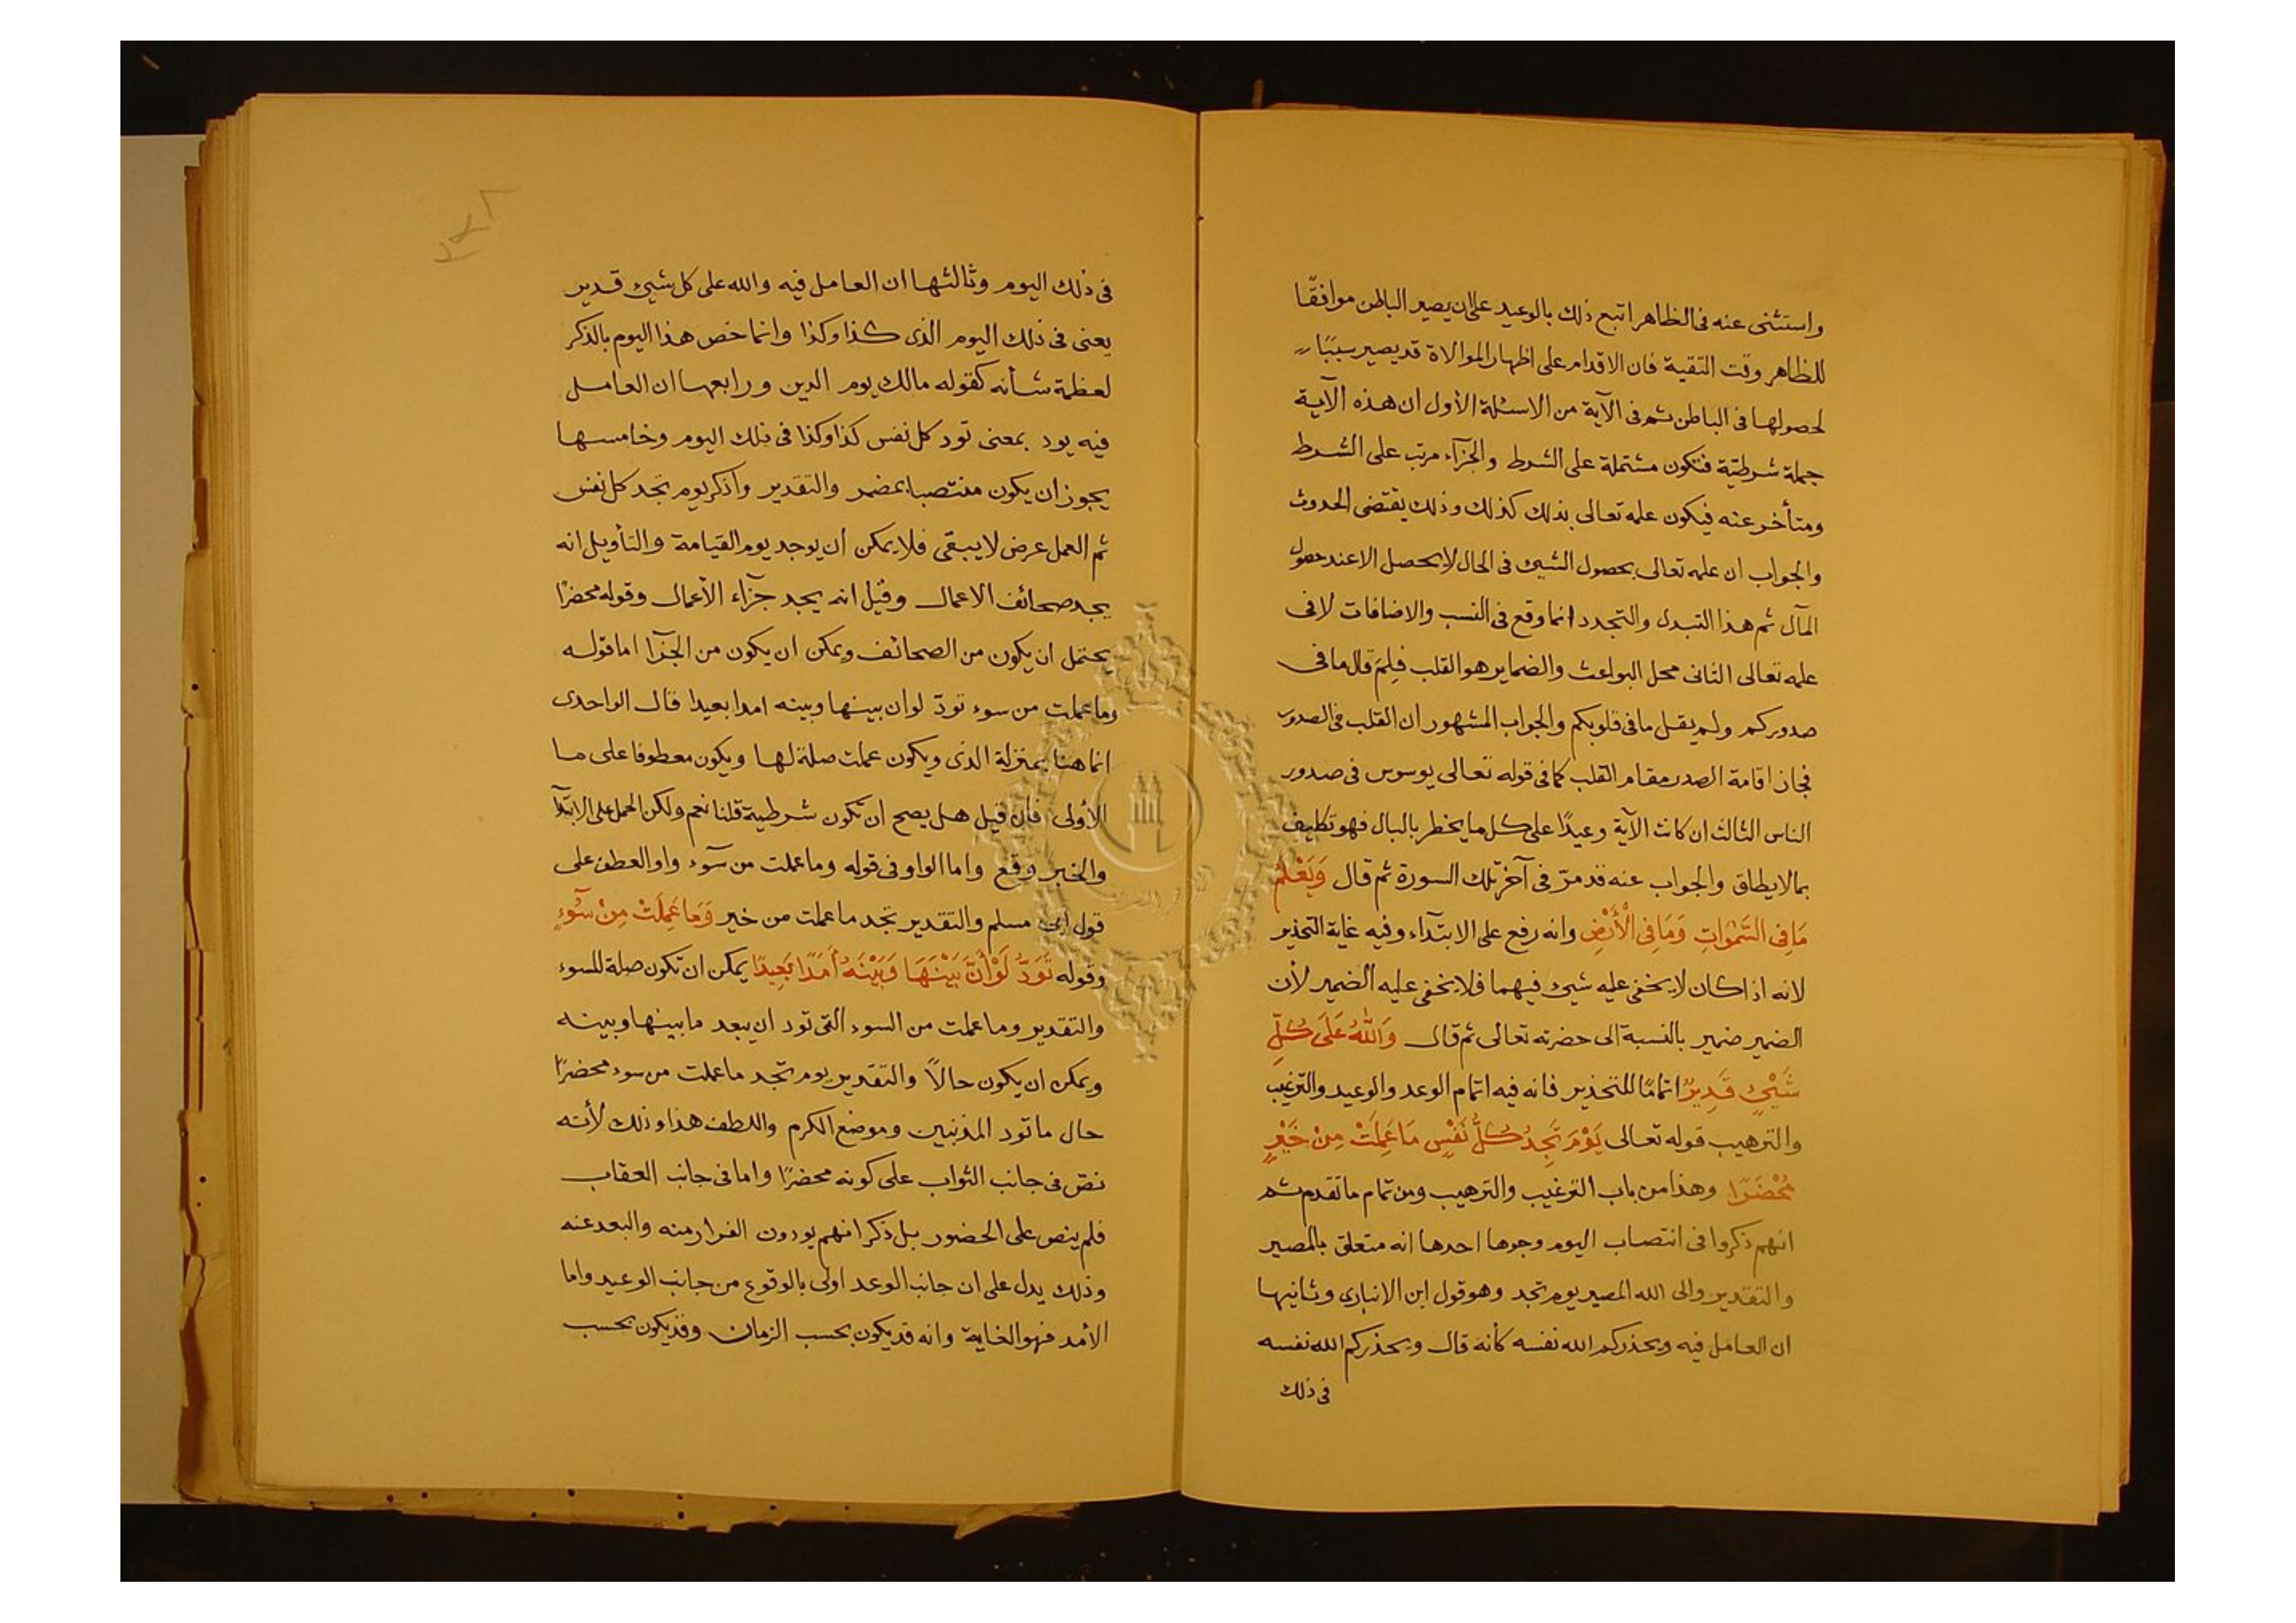 واستثنى عنه فى الظاهر اتبع ذلك بالوعيد على ان يصير الباطن موافقًا
للظاهر وقت التقية فان الاقدام على اظهار الموالاة قد يصير سببًا
لحصولها فى الباطن ثم فى الآية من الاسئلة الأول ان هذه الآية
جملة شرطيّة فتكون مشتملة على الشرط والجزآء مرتب على الشرط
ومتأخر عنه فيكون علمه تعالى بذلك كذلك وذلك يقتضى الحدوث
والجواب ان علمه تعالى بحصول الشيئ فى الحال لا يحصل الا عند حصول
المآل ثم هذا التبدل والتجدد انما وقع فى النسب والاضافات لا فى
علمه تعالى الثانى محل البواعث والضماير هو القلب فلِمَ قال ما فى
صدوركم ولم يقل ما فى قلوبكم والجواب المشهور ان القلب فى الصدور
فجاز اقامة الصدر مقام القلب كما فى قوله تعالى يوسوس فى صدور
الناس الثالث ان كانت الآية وعيدًا على كل ما يخطر بالبال فهو تكليف
بما لا يطاق والجواب عنه قد مرّ فى آخر تلك السورة ثم قال وَيَعْلَمُ
مَا فِى السَّمٰوَاتِ وَمَا فِى الْأَرْضِ وانه رفع على الابتدآء وفيه غاية التحذير
لانه اذا كان لا يخفى عليه شيئ فيهما فلا يخفى عليه الضمير لأن
الضمير ضمير بالنسبة الى حضرته تعالى ثم قال وَاللّٰهُ عَلَى كُلِّ
شَيْئٍ قَدِيرٌ اتمامًا للتحذير فانه فيه اتمام الوعد والوعيد والترغيب
والترهيب قوله تعالى يَوْمَ تَجِدُ كُلُّ نَفْسٍ مَا عَمِلَتْ مِنْ خَيْرٍ
مُحْضَرًا وهذا من باب الترغيب والترهيب ومن تمام ما تقدم ثم
انهم ذكروا فى انتصاب اليوم وجوها احدها انه متعلق بالمصير
والتقدير والى الله المصير يوم تجد وهو قول ابن الانبارى وثانيها
ان العامل فيه ويحذركم الله نفسه كأنه قال ويحذركم الله نفسه
فى ذلك
فى ذلك اليوم وثالثها ان العامل فيه والله على كل شيئ قدير
يعنى فى ذلك اليوم الذى كذا وكذا وانما خص هذا اليوم بالذكر
لعظمة شأنه كقوله مالك يوم الدين ورابعها ان العامل
فيه يود بمعنى تود كل نفس كذا وكذا فى ذلك اليوم وخامسها
يجوز ان يكون منتصبا بمضمر والتقدير واذكر يوم تجد كل نفس
ثم العمل عرض لا يبقى فلا يمكن أن يوجد يوم القيامة والتأويل انه
يجد صحائف الاعمال وقيل انه يجد جزآء الأعمال وقوله محضرًا
يحتمل ان يكون من الصحائف ويمكن ان يكون من الجزآ اما قوله
وما عملت من سوء تودّ لو ان بينها وبينه امدا بعيدا قال الواحدى
انما هنا بمنزلة الذى ويكون عملت صلة لها ويكون معطوفا على ما
الأولى فان قيل هل يصح ان تكون شرطية قلنا نعم ولكن الحمل على الابتدآ
والخبر وقع واما الواو فى قوله وما عملت من سوٓء واو العطف على
قول ابى مسلم والتقدير تجد ما عملت من خير وَمَا عَمِلَتْ مِنْ سُوٓءٍ
وقوله تَوَدُّ لَوْ أَنَّ بَيْنَهَا وَبَيْنَهُ أَمَدًا بَعِيدًا يمكن ان تكون صلة للسوء
والتقدير وما عملت من السوء التى تود ان يبعد ما بينها وبينه
ويمكن ان يكون حالاً والتقدير يوم تجد ما عملت من سوء محضرًا
حال ما تود المذنبين وموضع الكرم واللطف هذا وذلك لأنه
نصّ فى جانب الثواب على كونه محضرًا واما فى جانب العقاب
فلم ينص على الحضور بل ذكر انهم يودون الفرار منه والبعد عنه
وذلك يدل على ان جانب الوعد اولى بالوقوع من جانب الوعيد واما
الأمد فهو الغاية وانه قد يكون بحسب الزمان وقد يكون بحسب